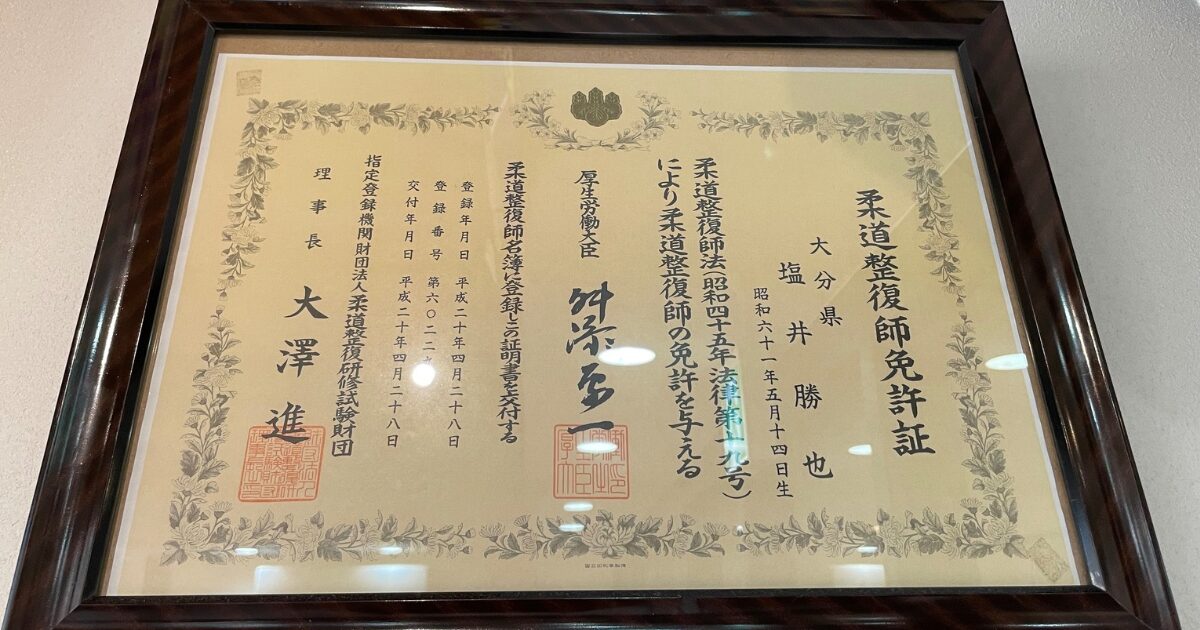 柔道整復師免許証
大分県
塩井勝也
昭和六十一年五月十四日生
柔道整復師法(昭和四十五年法律第十九号)
により柔道整復師の免許を与える
厚生労働大臣 舛添要一
柔道整復師名簿に登録しこの証明書を交付する
登録年月日 平成二十年四月二十八日
登録番号 第六〇二二
交付年月日 平成二十年四月二十八日
指定登録機関財団法人柔道整復研修試験財団
理事長 大澤進